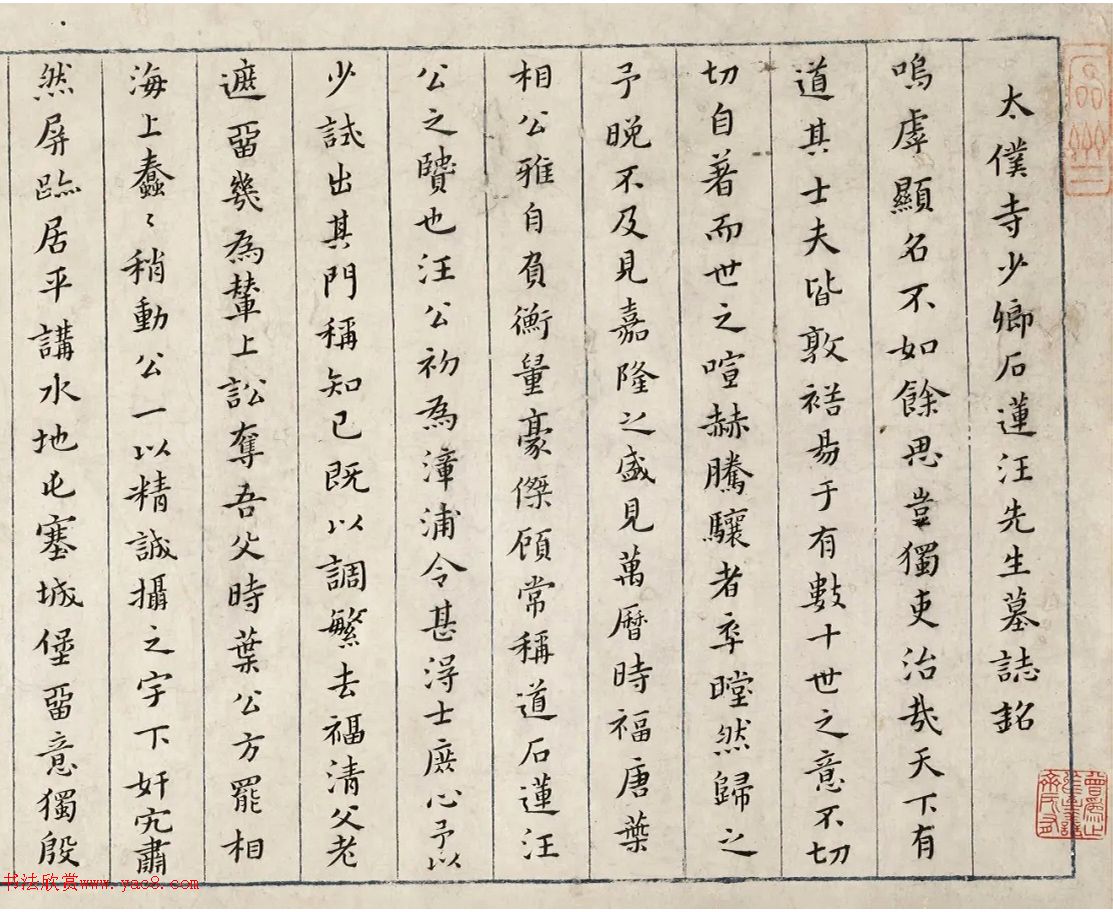 太僕寺少卿石蓮汪先生墓誌銘
嗚虖顯名不如餘思豈獨吏治哉天下有
道其士夫皆敦禔易于有數十世之意不切
切自著而世之喧赫騰驤者卒瞠然歸之
予晚不及見嘉隆之盛見萬曆時福唐葉
相公雅自負衡量豪傑顧常稱道石蓮汪
公之賢也汪公初為漳浦令甚淂士庶心予以
少試出其門稱知己既以調繁去福清父老
遮畱幾為輦上訟奪吾父時葉公方罷相
海上蠢〻稍動公一以精誠攝之宇下奸宄肅
然屏跡居平講水地屯塞城堡畱意獨殷
书法欣赏www.yac8.com